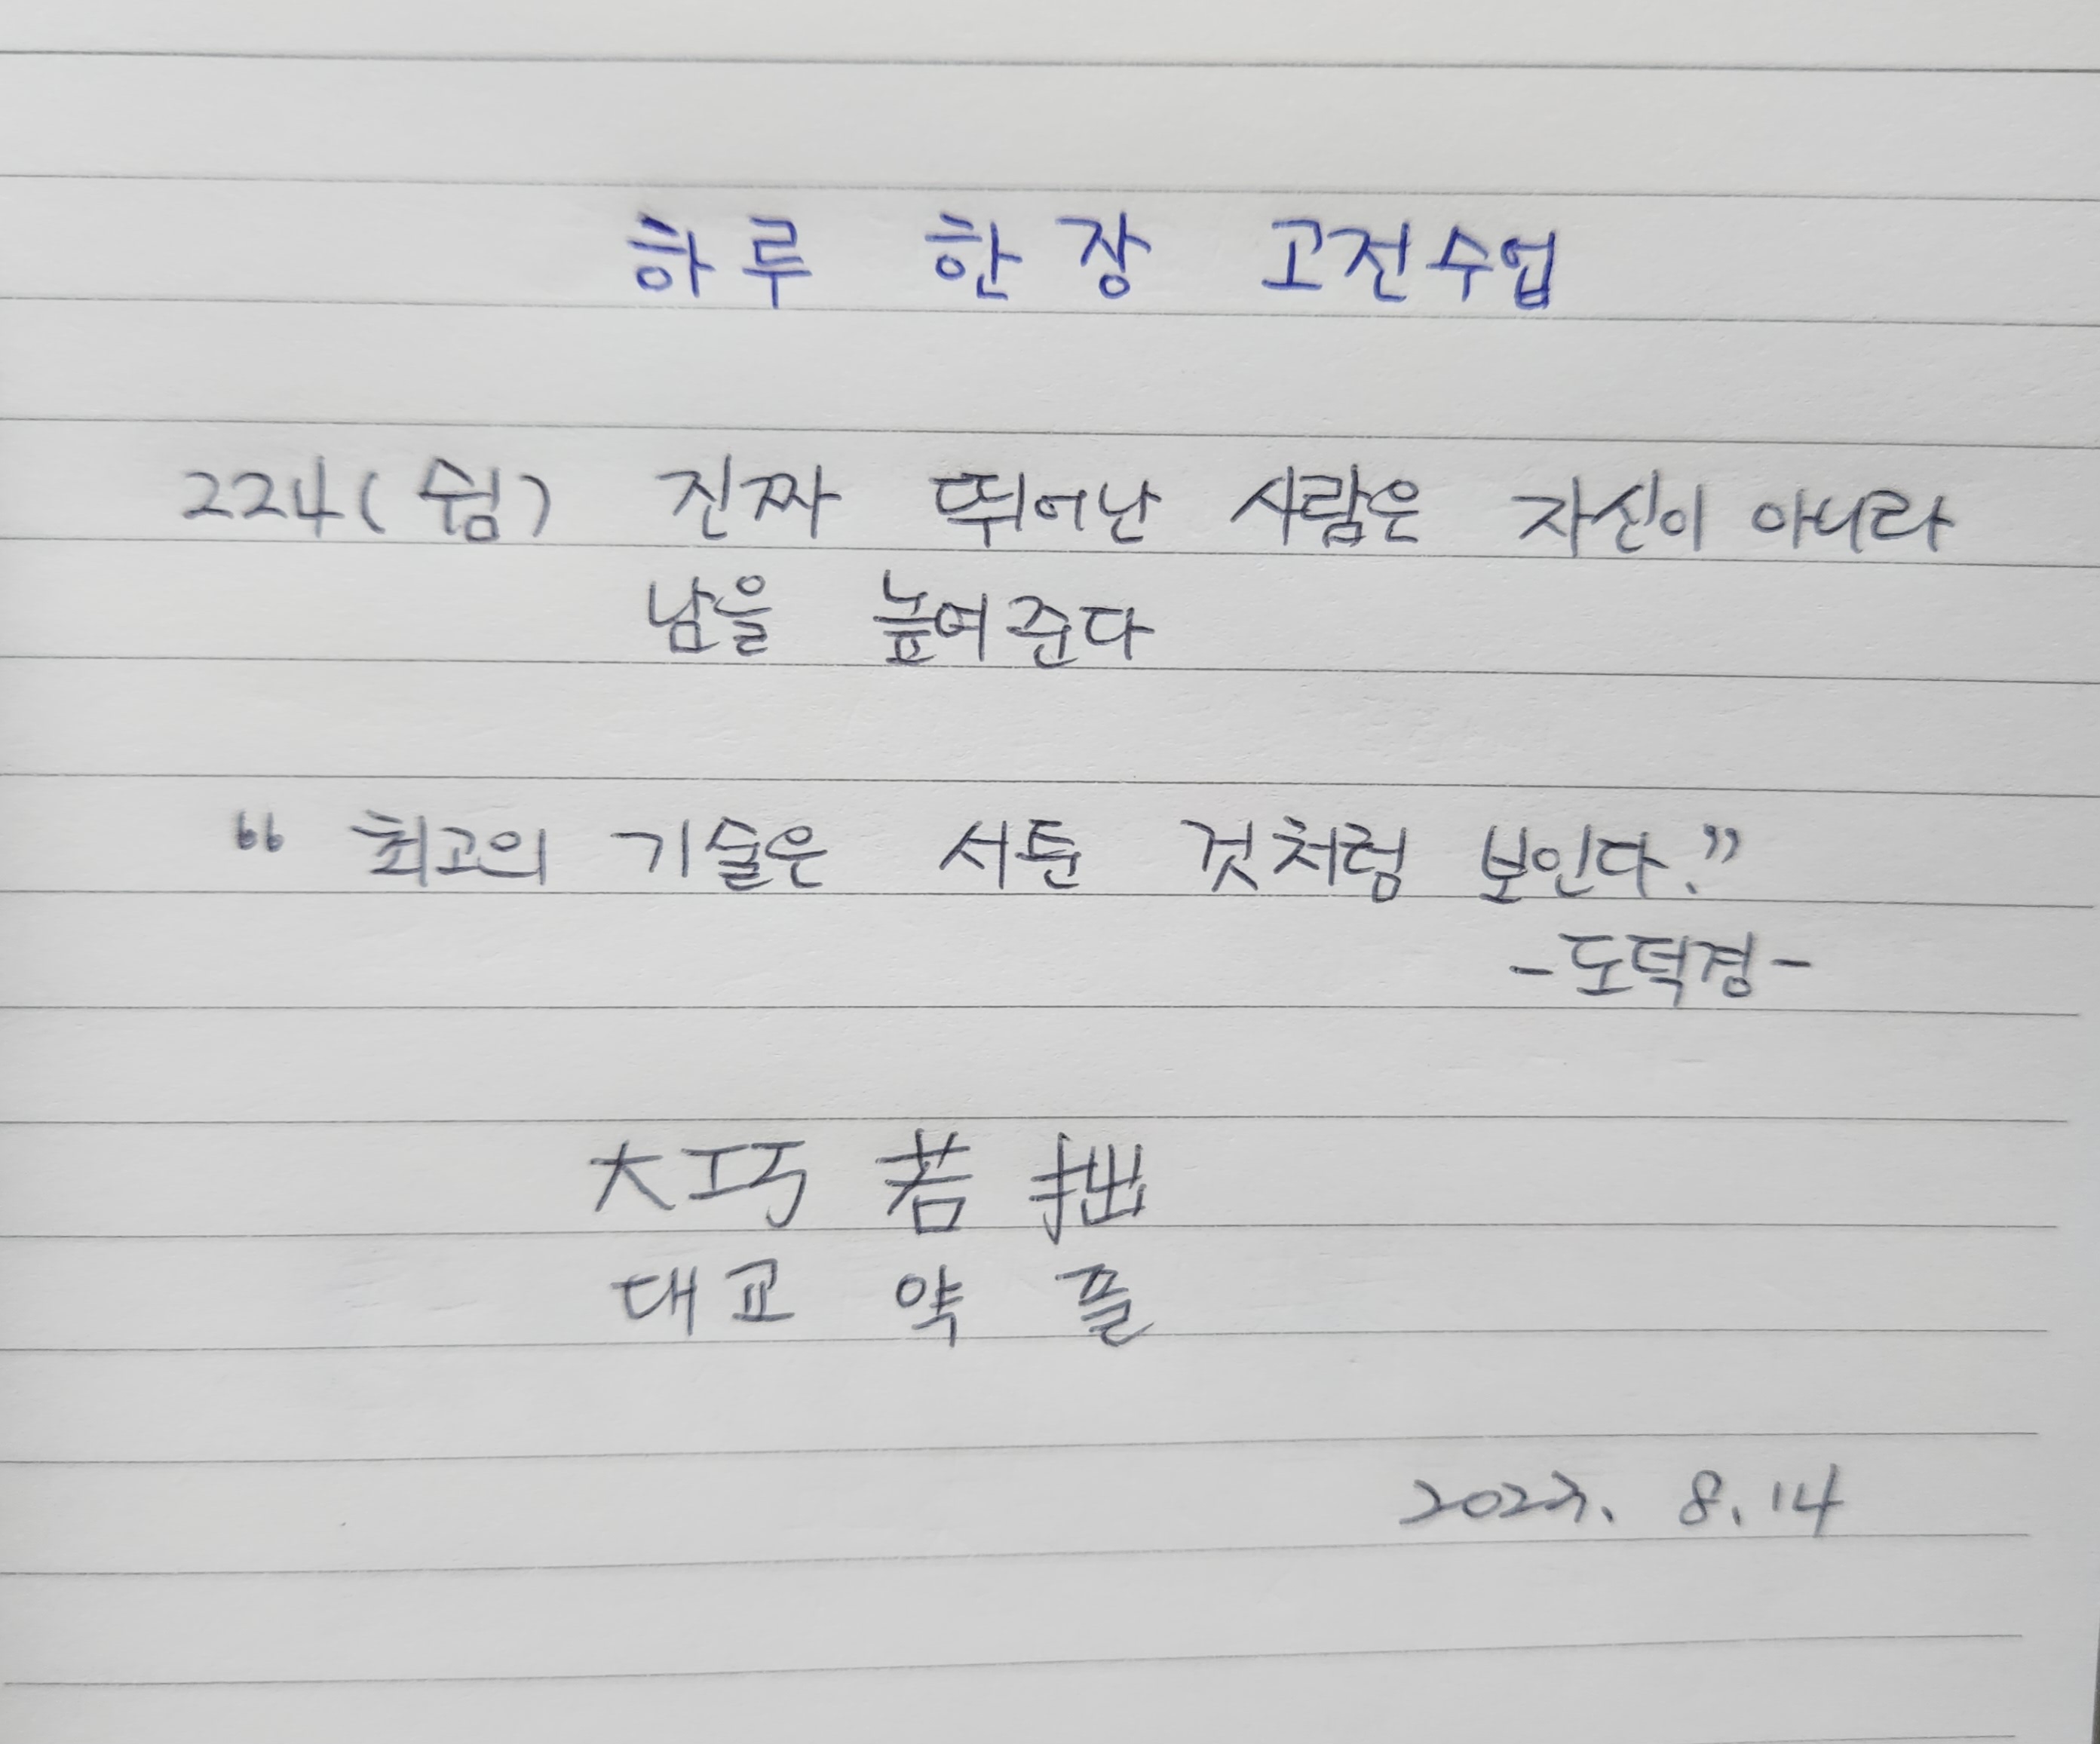 하루 한장 고전수업
224(쉼) 진짜 뛰어난 사람은 자신이 아니라
남을 높여준다
“최고의 기술은 서툰 것처럼 보인다.”
-도덕경-
大巧若拙
대교약졸
2023. 8. 14